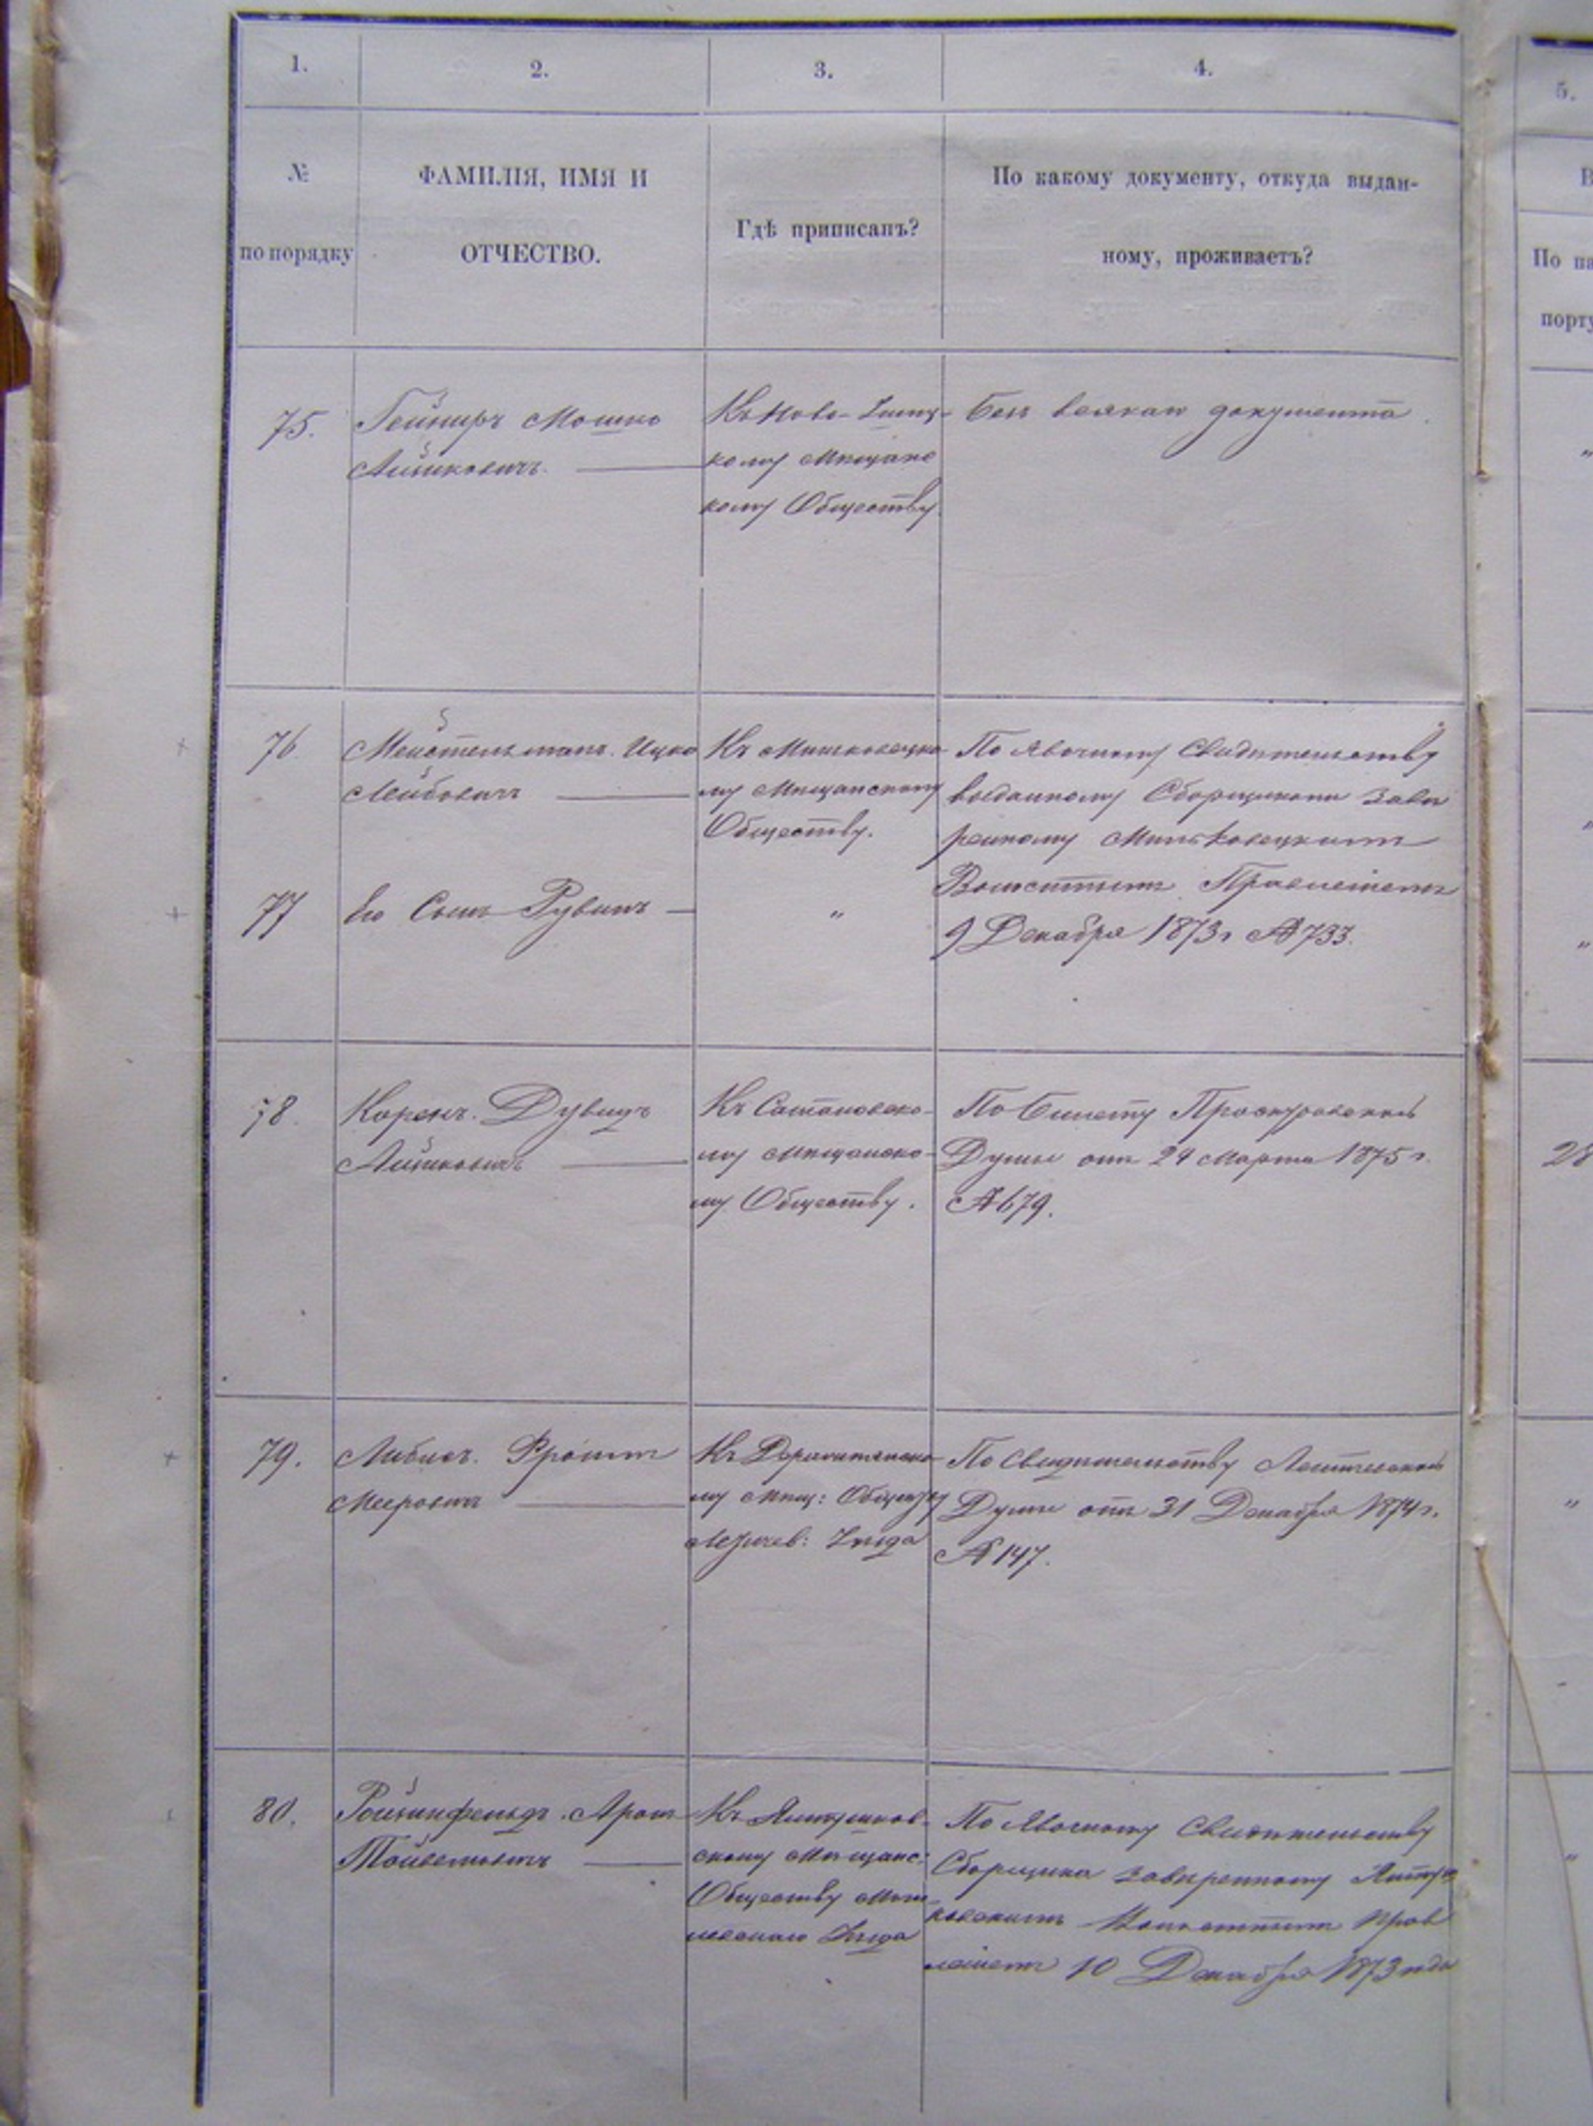 1.
2.
3.
4.
5.
№
по порядку
ФАМИЛІЯ, ИМЯ И
ОТЧЕСТВО.
Гдѣ приписанъ?
По какому документу, откуда выдан-
ному, проживаетъ?
В
По па
порту
75.
Мошко
Къ Ново-Ушиц-
кому Мѣщанс
кому Обществу.
Безъ всякаго документа.
"
76
Ицко
Лейбовичъ
Къ Миньковецко
му Мѣщанскому
Обществу.
По Явочному Свидѣтельству
выданному Сборщикомъ Завѣ
ренному Миньковецкимъ
Волостнымъ Правленіемъ
9 Декабря 1873 г № 733.
"
77
Его Сынъ Рувинъ
"
"
78.
Коренъ. Дувидъ
Къ Сатановско-
му Мѣщанско-
му Обществу.
По Билету Проскуровской
Думы отъ 24 Марта 1875 г.
№ 679.
28
79.
Фроимъ
Мееровичъ
му Мѣщ: Обществу
Летичев: Уѣзда
По Свидѣтельству Летичевской
Думы отъ 31 Декабря 1874 г.
№ 147.
"
80.
Аронъ
Къ Ялтушков-
скому Мѣщанс:
Обществу Моги
левскаго Уѣзда
По Явочному Свидѣтельству
Сборщика Завѣренному Ялтуш
ковскимъ Волостнымъ Прав
леніемъ 10 Декабря 1873 года
"